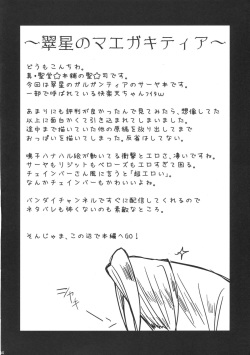 ～翠星のマエガキティア～
どうもこんちわ。
真・聖堂☆本舗の聖☆司です。
今回は翠星のガルガンティアのサーヤ本です。
一部で呼ばれている快楽天ちゃんﾌﾋﾋw
あまりにも評判が良かったんで見てみたら、想像してた
以上に面白かくて引き込まれてしまいました。
途中まで描いていた他の原稿を放り出してまで
おっぱいを描いてしまいました。これは仕方ない。
鳴子ハナハル絵が動いてる衝撃とエロさ、凄いですね。
サーヤもリジットもベローズもエロすぎて困る。
チェインバーさん風に言うと「超エロい」。
なんかチェインバーもかわいいよね。
バンダイチャンネルですぐに配信してくれるので
ネタバレも怖くないのも素敵なところ。
そんじゃま、この辺で本編へGO！